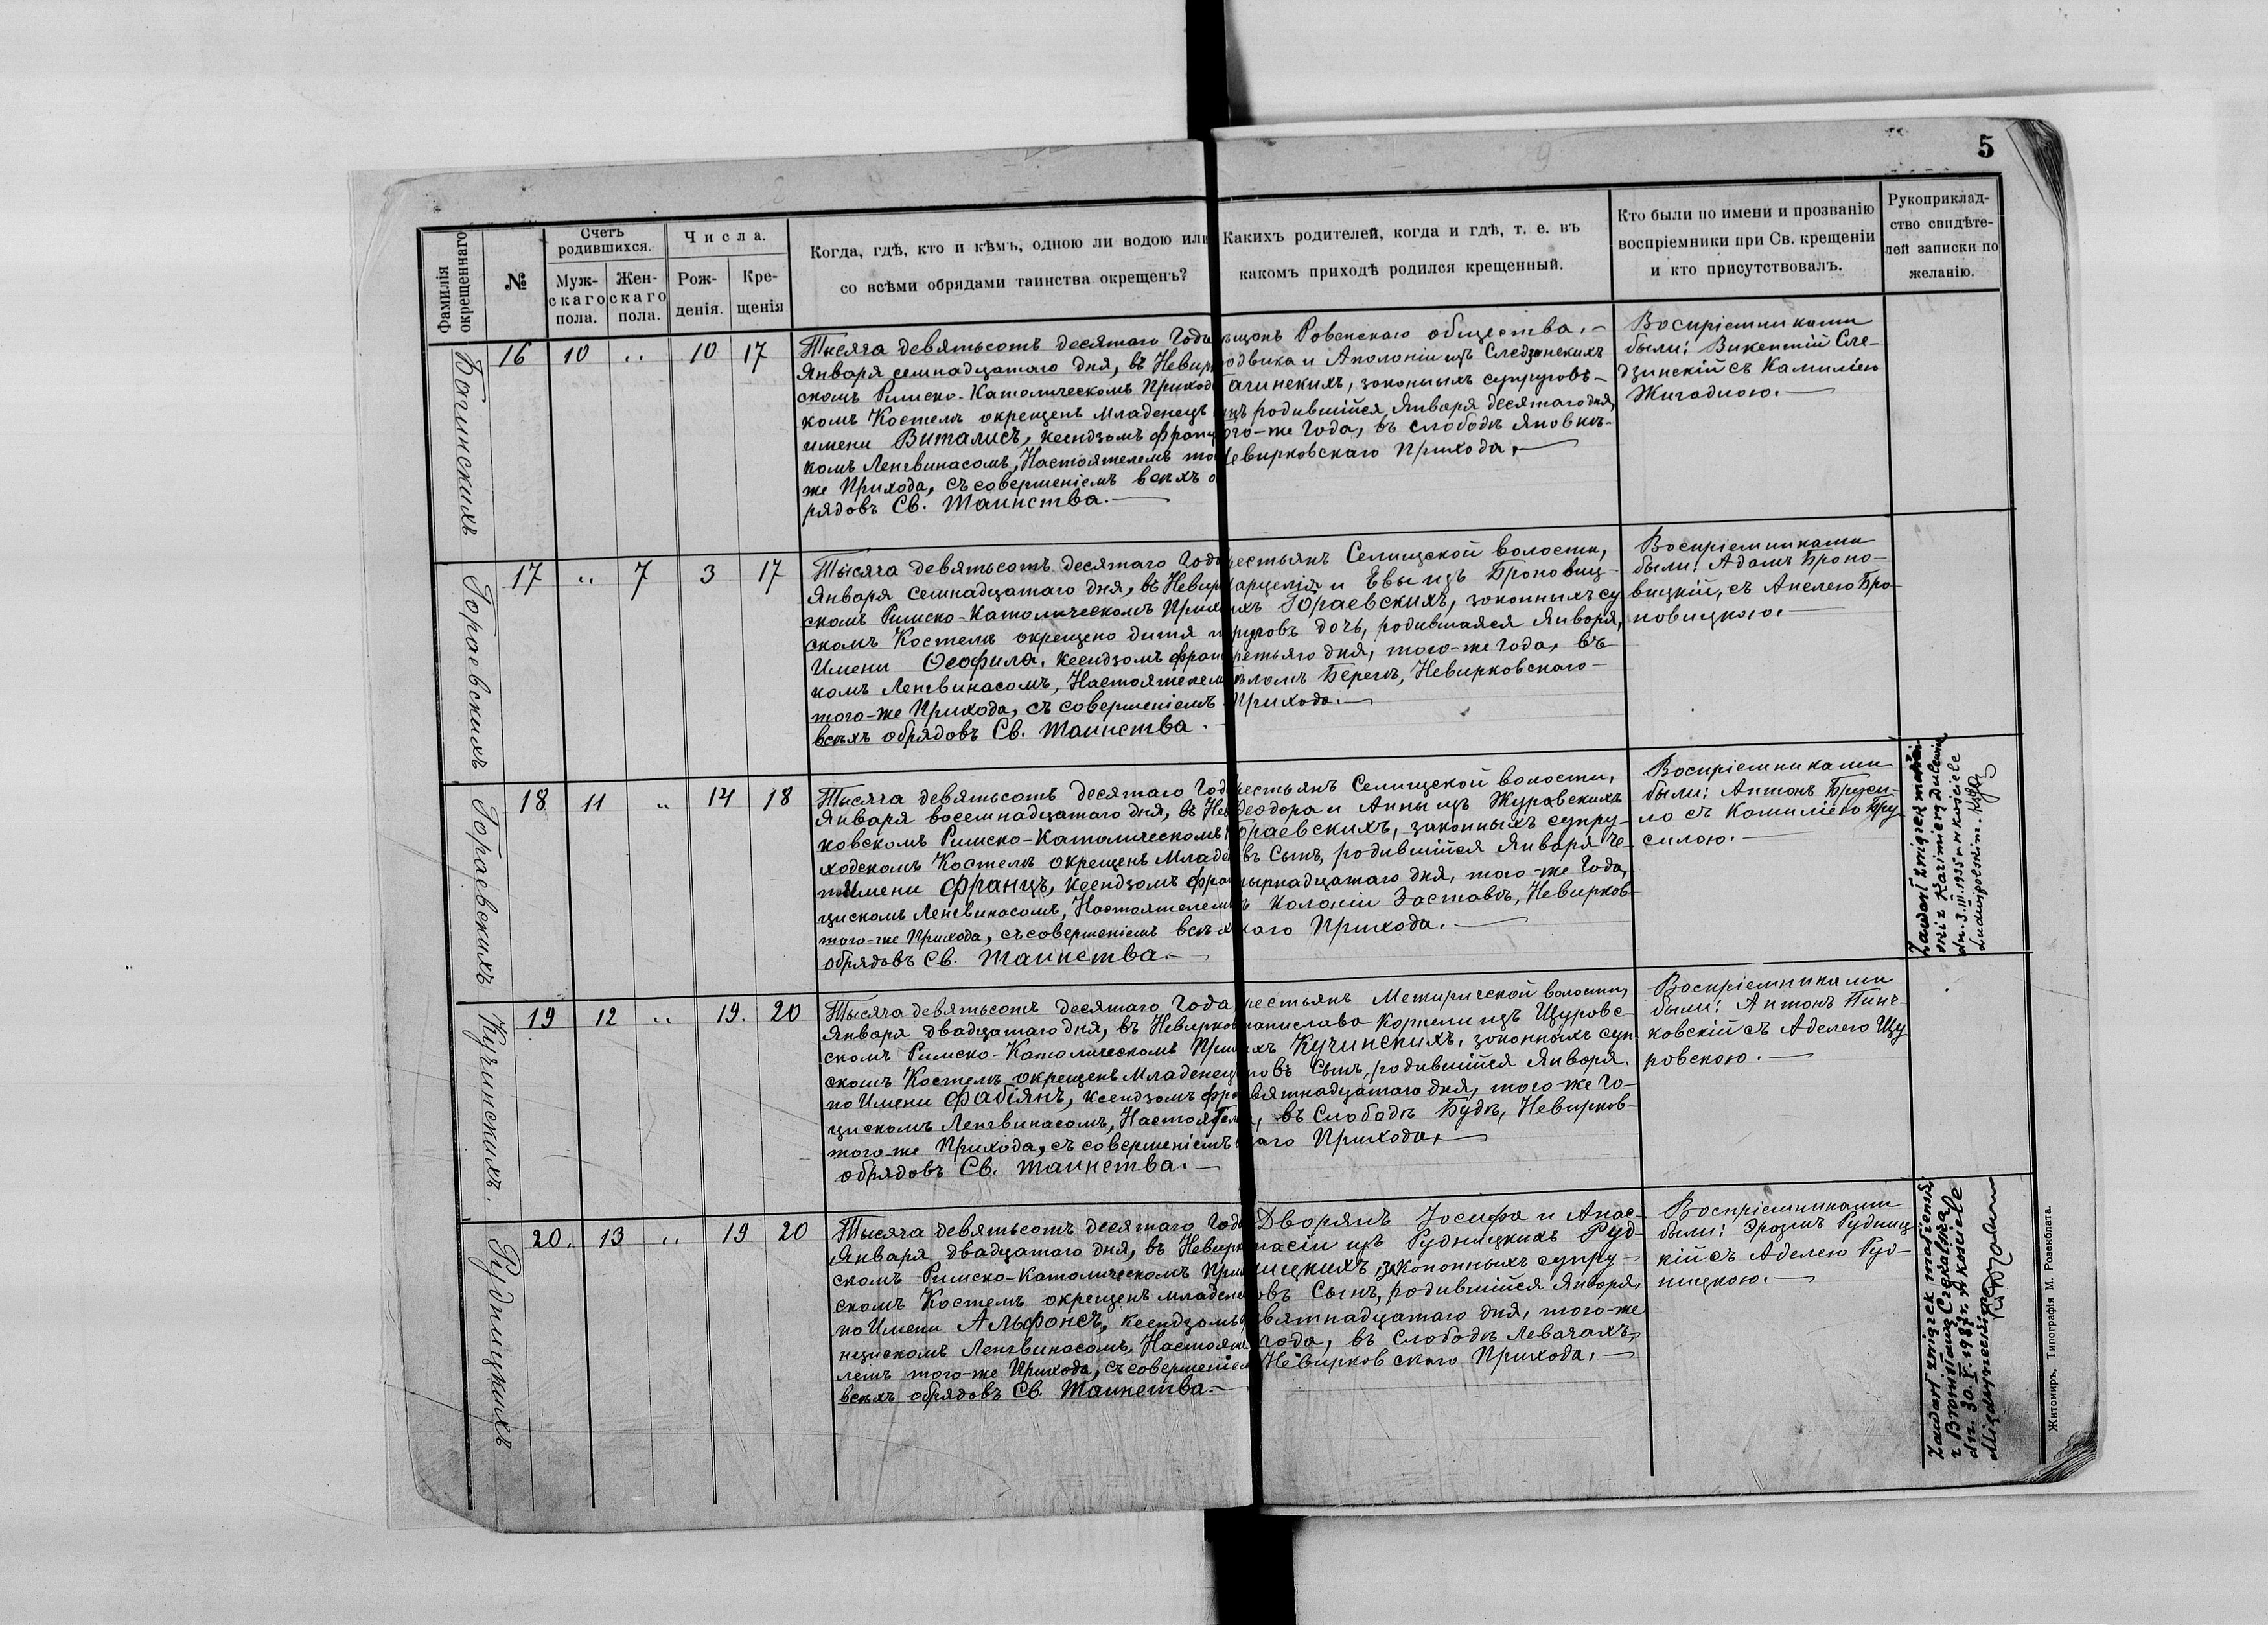 5
Фамилія окрещеннаго
№
Счетъ родившихся.
Муж-
скаго
пола.
Жен-
скаго
пола.
Числа.
Рож-
денія.
Кре-
щенія
Когда, гдѣ, кто и кѣмъ, одною ли водою или
со всѣми обрядами таинства окрещенъ?
Какихъ родителей, когда и гдѣ, т. е. въ
какомъ приходѣ родился крещенный.
Кто были по имени и прозванію
воспріемники при Св. крещеніи
и кто присутствовалъ.
Рукоприклад-
ство свидѣте-
лей записки по
желанію.
Багинскихъ
16 10 „ 10 17
Тысяча девятьсотъ десятаго Года
Января семнадцатаго дня, въ Невир
скомъ Римско-Католическомъ Приход
комъ Костелѣ окрещенъ Младенецъ
имени Виталисъ, ксендзомъ Франц
комъ Ленгвинасомъ, Настоятелемъ то
же Прихода, съ совершеніемъ всѣхъ о
рядовъ Св. Таинства.
щанъ Ровенскаго общества,
одвика и Аполоніи изъ Следзинскихъ
агинскихъ, законныхъ супруговъ
родившійся Января десятаго дня,
ого-же Года, въ слободѣ Яновкѣ
евирковскаго Прихода,
Воспріемниками
были: Викентій Сле-
дзинскій съ Камиліею
Жигадлою.
Гораевскихъ
17 „ 7 3 17
Тысяча девятьсотъ десятаго Года
Января семнадцатаго дня, въ Невир
скомъ Римско-Католическомъ Прихо
скомъ Костелѣ окрещено дитя п
Имени Ѳеофила, ксендзомъ Фран
комъ Ленгвинасомъ, Настоятелем
того-же Прихода, съ совершеніемъ
всѣхъ обрядовъ Св. Таинства.
естьянъ Селищской волости,
арцелія и Евы изъ Броновиц-
ихъ Гораевскихъ, законныхъ су
руговъ дочь, родившаяся Января,
ретьяго дня, того-же Года, въ
Берегъ, Невирковскаго
Прихода.
Воспріемниками
были: Адамъ Броно-
вицкій, съ Анелею Бро-
новицкою.
Гораевскихъ
18 11 „ 14 18
Тысяча девятьсотъ десятаго Год
Января восемнадцатаго дня, въ Не
ковскомъ Римско-Католическомъ
ходскомъ Костелѣ окрещенъ Младе
по Имени Францъ, ксендзомъ Фра
цискомъ Ленгвинасомъ, Настоятелем
того-же Прихода, съ совершеніемъ всѣх
обрядовъ Св. Таинства.
естьянъ Селищской волости,
еодора и Анны изъ Журавскихъ
ораевскихъ, законныхъ супру-
въ Сынъ, родившійся Января че-
тырнадцатаго дня, того-же Года,
въ колоніи Заставѣ, Невирков-
каго Прихода.
Воспріемниками
были: Антонъ Бруси-
ло съ Камиліею Бру
силою.
Zawarł związek małżeń-
ski z Kazimierą
dn. 3.III.1935 r. w kościele
Ludwipolskim.
Кучинскихъ.
19 12 „ 19. 20
Тысяча девятьсотъ десятаго Года
Января двадцатаго дня, въ Невирков
скомъ Римско-Католическомъ Прих
скомъ Костелѣ окрещенъ Младенец
по Имени Фабіянъ, ксендзомъ Фра
цискомъ Ленгвинасомъ, Настоятел
того-же Прихода, съ совершеніемъ
обрядовъ Св. Таинства.
рестьянъ Межиричской волости,
танислава Корнели изъ Щуровс-
ихъ Кучинскихъ, законныхъ суп
говъ Сынъ, родившійся Января
вятнадцатаго дня, того-же Го-
, въ Слободѣ Будѣ, Невирков-
каго Прихода,
Воспріемниками
были: Антонъ Пинч-
ковскій съ Аделею Щу
ровскою.
Рудницкихъ
20. 13 „ 19 20
Тысяча девятьсотъ десятаго Года
Января двадцатаго дня, въ Невирк
скомъ Римско-Католическомъ При
скомъ Костелѣ окрещенъ Младене
по Имени Альфонсъ, ксендзомъ
нцискомъ Ленгвинасомъ, Настояте
лемъ того-же Прихода, съ совершеніем
всѣхъ обрядовъ Св. Таинства.
Дворянъ Іосифа и Анас-
тасіи изъ Рудницкихъ Руд-
ницкихъ, законныхъ супру-
овъ Сынъ, родившійся Января,
вятнадцатаго дня, того-же
года, въ слободѣ Левачахъ,
Невирковскаго Прихода,
Воспріемниками
были: Эразмъ Рудниц
кій съ Аделею Руд-
ницкою.
Zawarł związek małżeński
z Bronisławą
dn. 30. w kościele
Житомиръ, Типографія М. Розенблата.